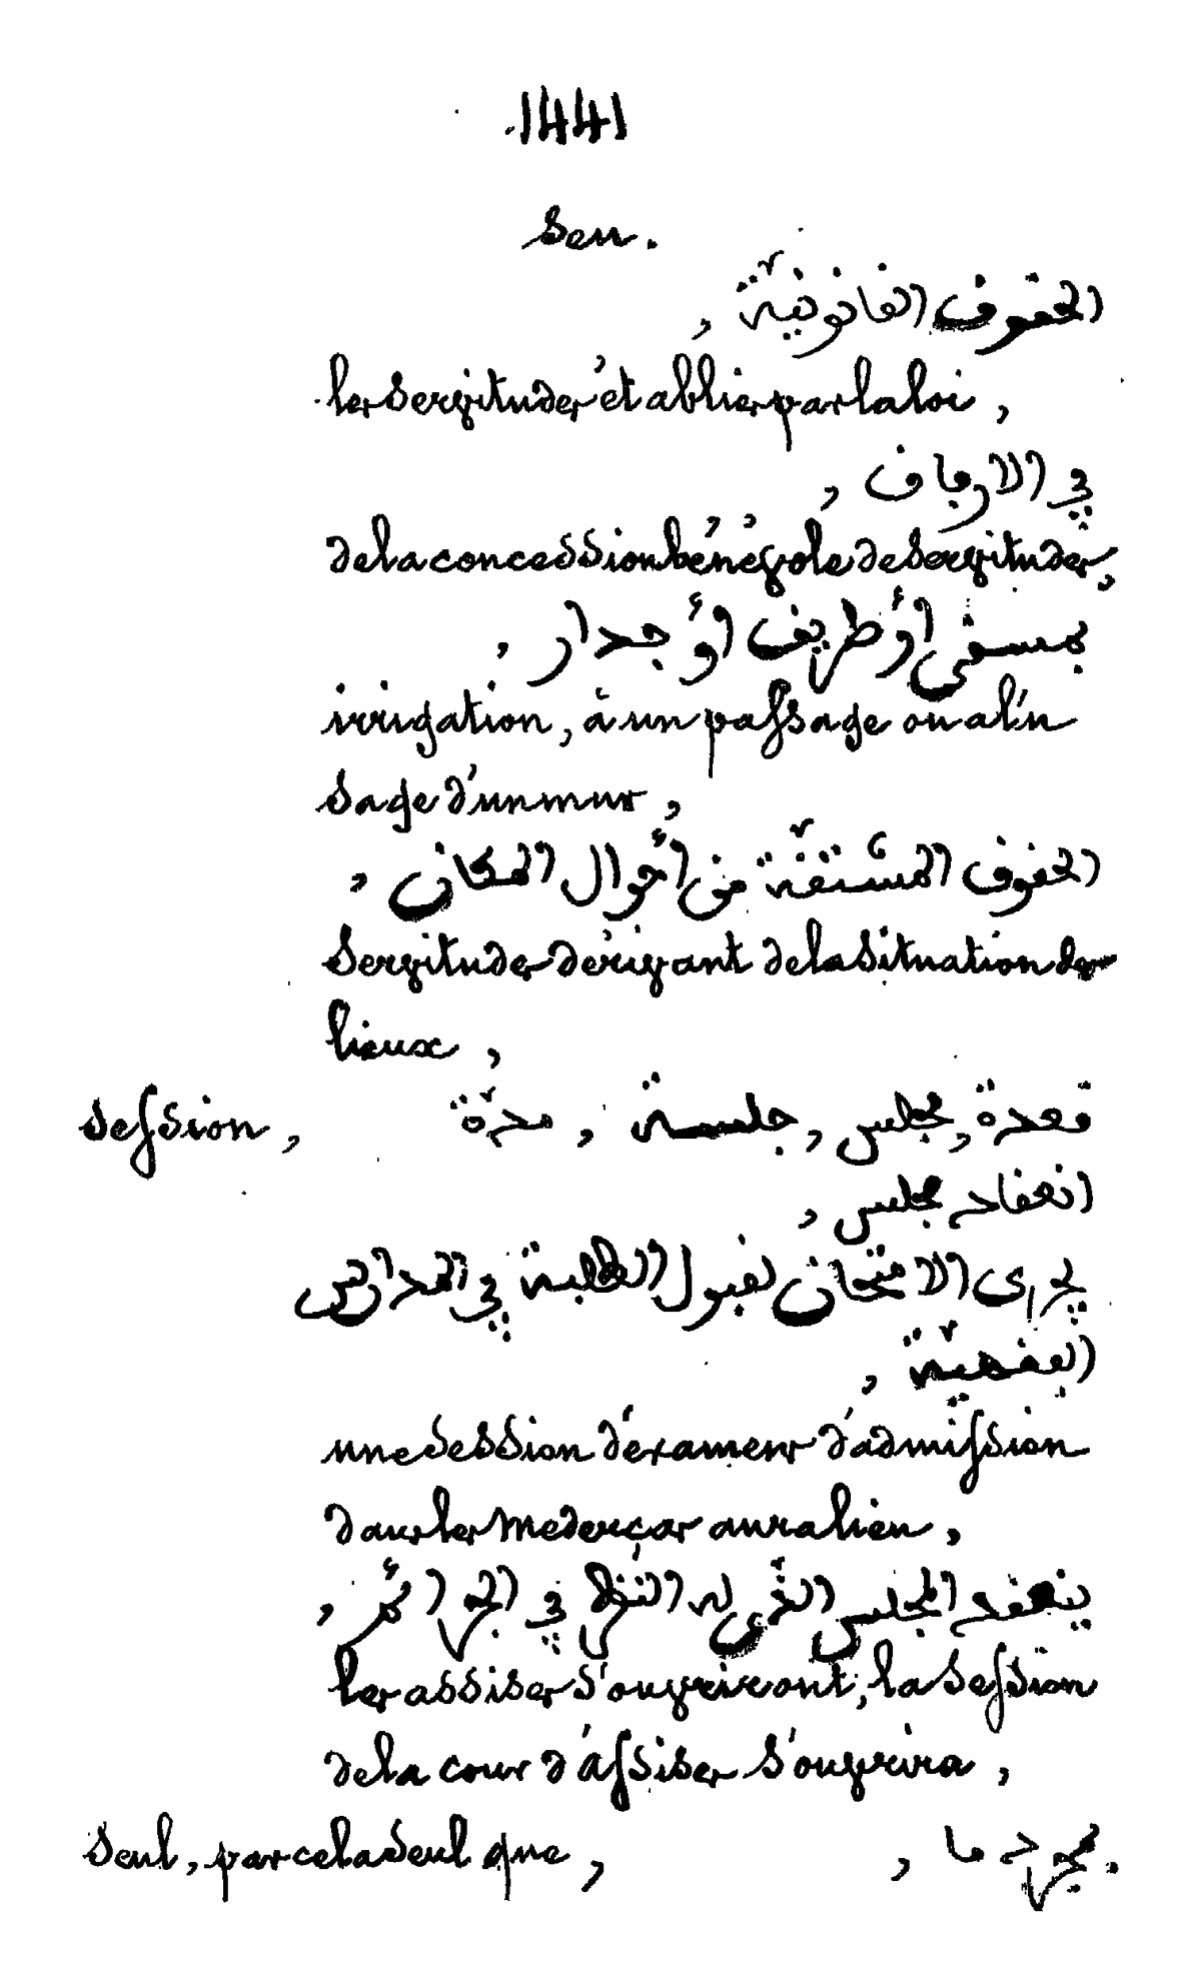 1441
Seu.
الحقوق القانونيّة ,
les servitudes établies par la loi,
في الارفاق ,
de la concession bénévole de servitudes,
بمسقى أو طريق أو جدار ,
irrigation, à un passage ou a l'u
sage d'un mur,
الحقوق المشتقّة من أحوال المكان ,
Servitudes dérivant de la situation des
lieux,
session, قعدة, مجلس, جلسة, مدّة
انعقاد مجلس ,
يجرى الامتحان لقبول الطلبة في المدارس
الفقهيّة ,
une session d'examens d'admission
dans les Mederças aura lieu,
ينعقد المجلس الذّي له النّظر في الجرائم ,
les assises s'ouvriront, la session
de la cour d'assises s'ouvrira,
Seul, par cela seul que, بمجرد ما ,